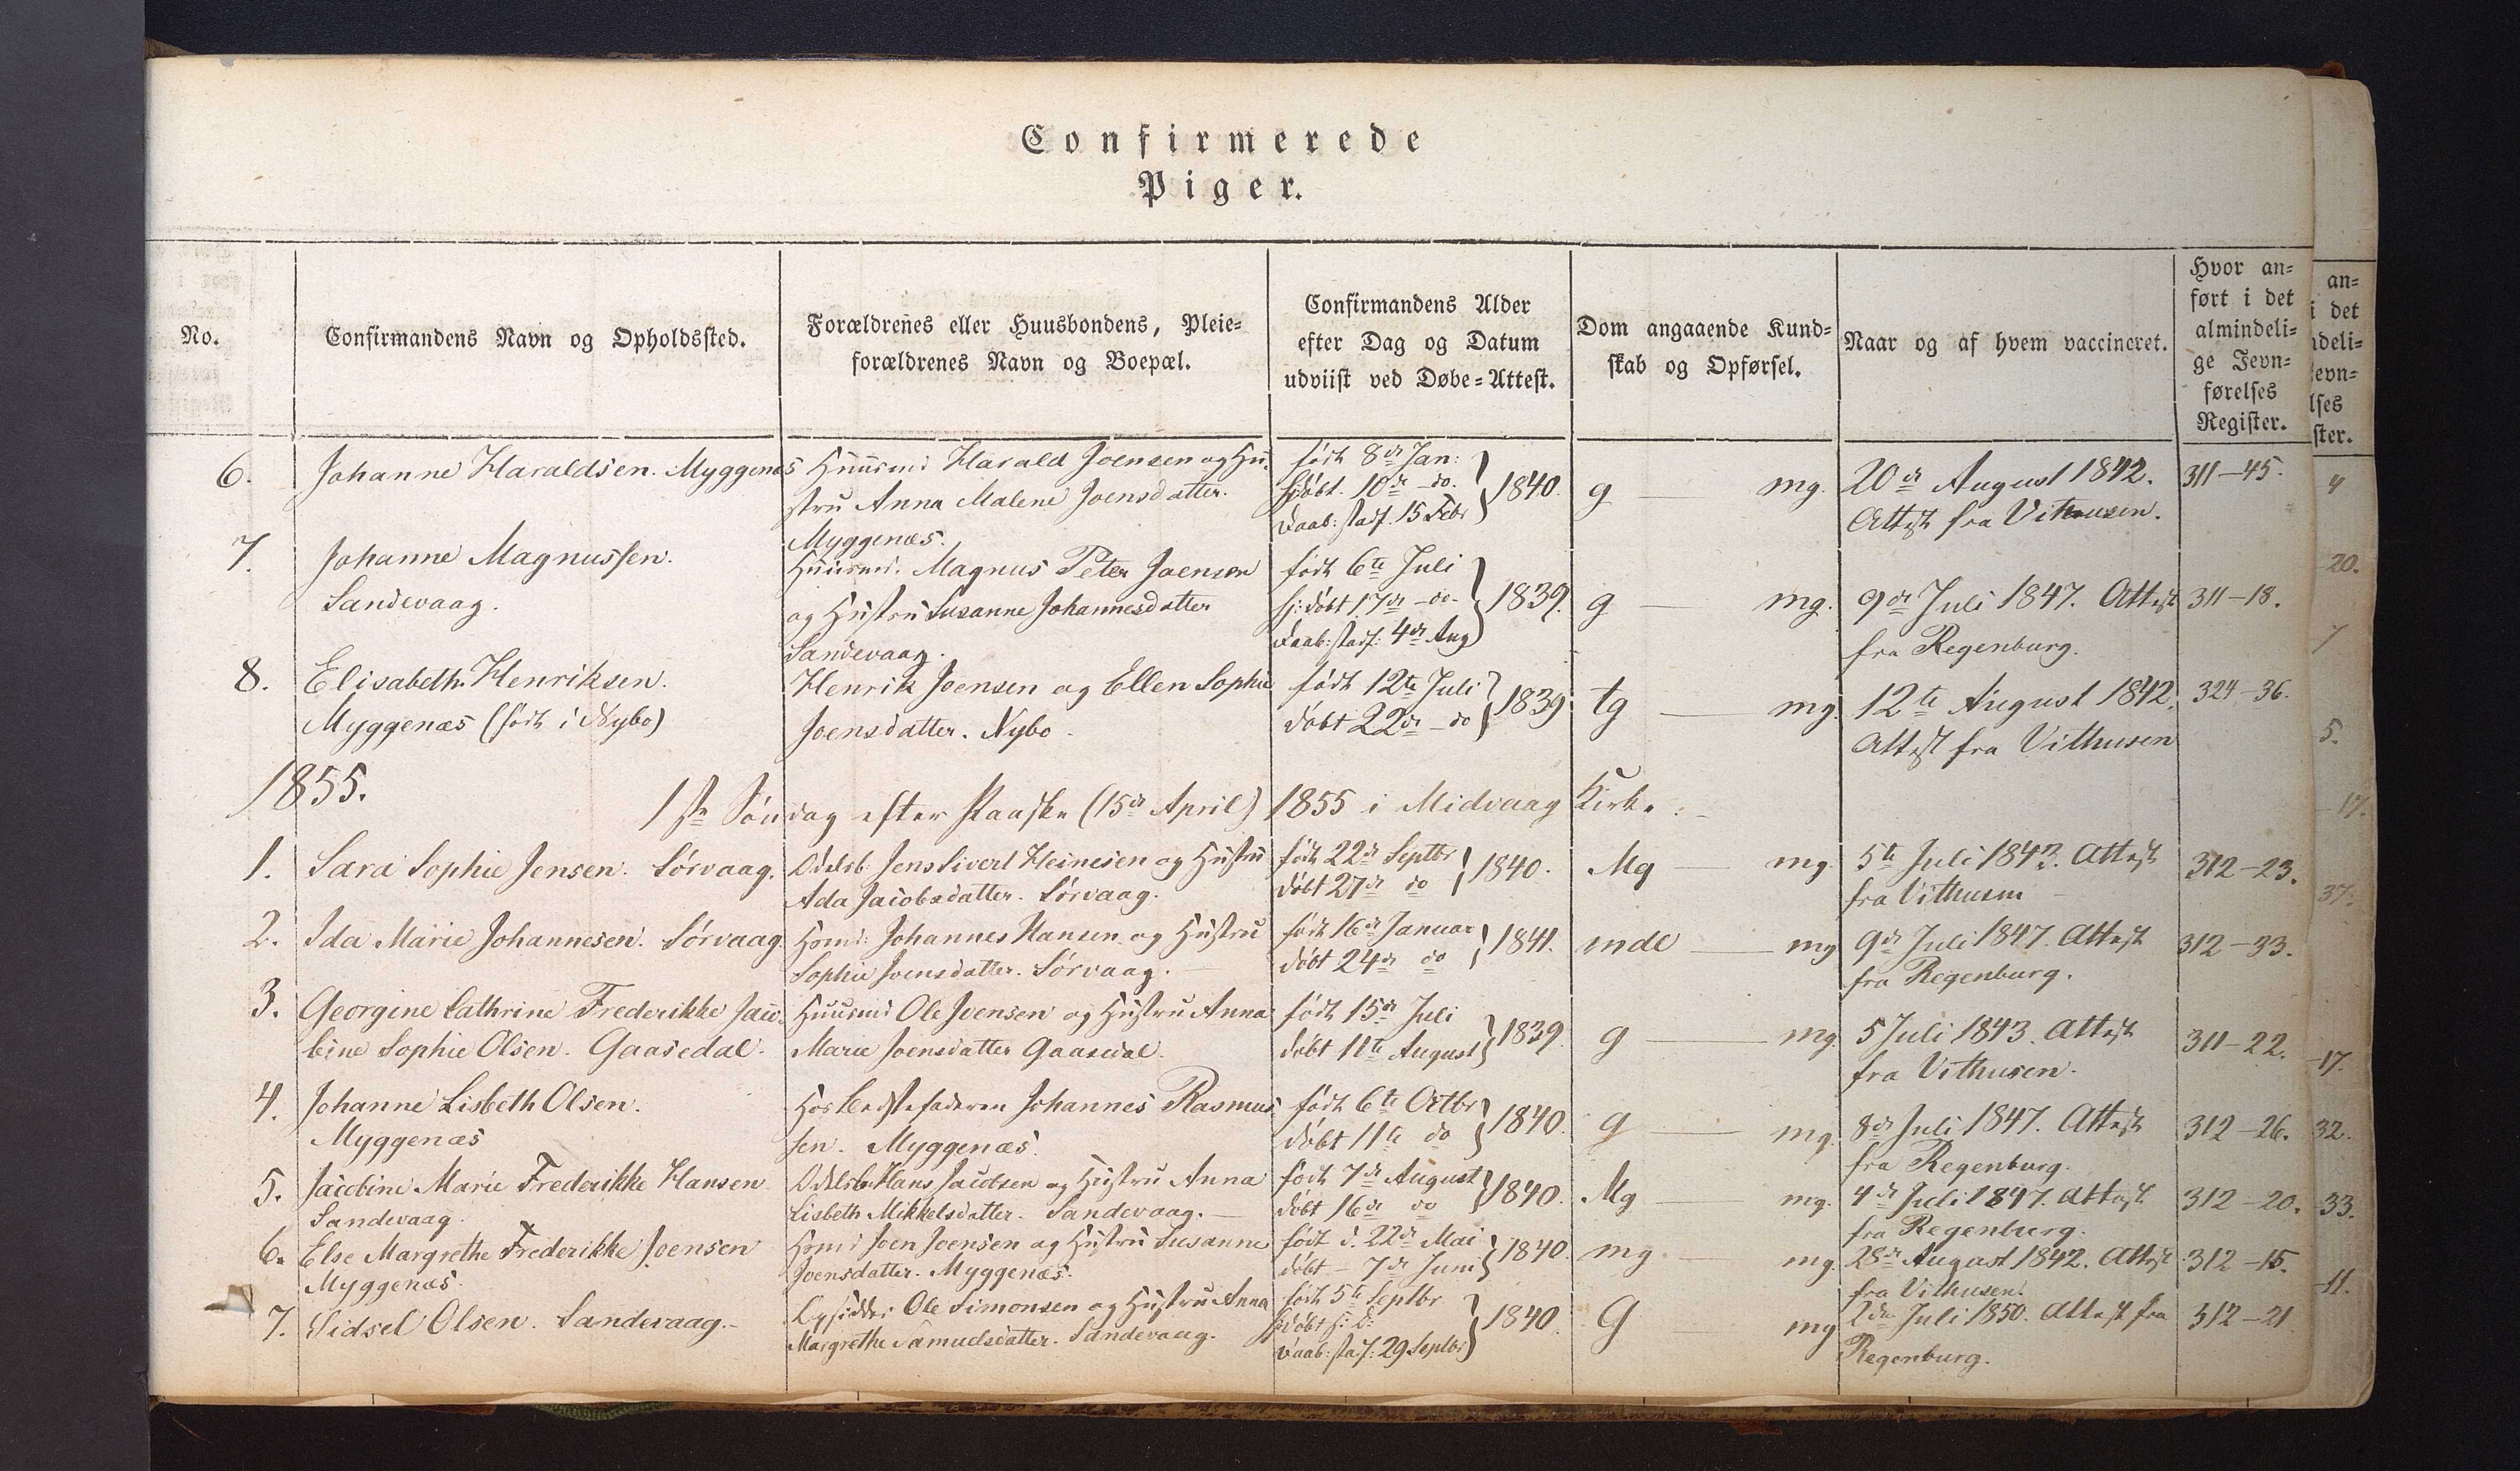 Confirmerede
Piger.
No.
Confirmandens Navn og Opholdssted.
Forældrenes eller Huusbondens, Pleie=
forældrenes Navn og Boepæl.
Confirmandens Alder
efter Dag og Datum
udviist ved Døbe=Attest.
Dom angaaende Kund=
skab og Opførsel.
Naar og af hvem vaccineret.
Hvor an=
ført i det
almindeli=
ge Jevn=
førelses
Register.
6. Johanne Haraldsen. Myggenæs
Huusmd Harald Joensen og Hu-
stru Anna Malene Joensdatter.
Myggenæs.
født 8de Jan:
hjdøbt. 10de do.
Daab: stadf. 15 Febr
1840.
g — mg.
20de August 1842.
Attest fra Vithusen.
311-45.
7. Johanne Magnussen.
Sandevaag.
Huusmd. Magnus Peter Joensen
og Hustru Susanne Johannesdatter
Sandevaag.
født 6te Juli
hj: døbt 17de do
Daab: stadf: 4de Aug
1839.
g — mg.
9de Juli 1847. Attest
fra Regenburg.
311-18.
8. Elisabeth Henriksen.
Myggenæs (født i Nybo)
Henrik Joensen og Ellen Sophie
Joensdatter. Nybo.
født 12te Juli
døbt 22de do
1839.
tg — mg.
12te August 1842.
Attest fra Vithusen
324-36.
1855.
1ste Søndag efter Paaske (15de April) 1855 i Midvaag Kirke:
1. Sara Sophie Jensen. Sørvaag.
Odelsb: Jens Sivert Heinesen og Hustru
Ada Jacobsdatter. Sørvaag.
født 22de Septbr
døbt 27de do
1840.
Mg — mg.
5te Juli 1843. Attest
fra Vithusen
312-23.
2. Ida Marie Johannesen. Sørvaag.
Hsmd: Johannes Hansen og Hustru
Sophie Joensdatter. Sørvaag.
født 16de Januar
døbt 24de do
1841.
mdl — mg
9de Juli 1847. Attest
fra Regenburg.
312-33.
3. Georgine Cathrine Frederikke Jaco-
bine Sophie Olsen. Gaasedal.
Huusmd Ole Joensen og Hustru Anna
Marie Joensdatter Gaasedal.
født 15de Juli
døbt 11te August
1839.
g — mg.
5 Juli 1843. Attest
fra Vithusen.
311-22.
4. Johanne Lisbeth Olsen.
Myggenæs
Hos Bedstefaderen Johannes Rasmus
sen. Myggenæs.
født 6te Octbr
døbt 11te do
1840.
g — mg.
8de Juli 1847. Attest
fra Regenburg.
312-26.
5. Jacobine Marie Frederikke Hansen
Sandevaag.
Odelsb: Hans Jacobsen og Hustru Anna
Lisbeth Mikkelsdatter. Sandevaag.
født 7de August
døbt 16de do
1840.
Mg — mg.
4de Juli 1847. Attest
fra Regenburg.
312-20.
6. Else Margrethe Frederikke Joensen
Myggenæs.
Hsmd Joen Joensen og Hustru Susanne
Joensdatter. Myggenæs.
født d. 22de Mai
døbt - 7de Juni
1840.
mg. — mg.
28de August 1842. Attest
fra Vithusen.
312-15.
7. Sidsel Olsen. Sandevaag.
Opsidder Ole Simonsen og Hustru Anna
Margrethe Samuelsdatter. Sandevaag.
født 5te Septbr
Daab: stadf: 29 Septbr
1840.
G — mg
2den Juli 1850. Attest fra
Regenburg.
312-21
an=
i det
ndeli=
Jevn=
lses
ster.
4
20.
7
5.
17.
37.
17.
32.
33.
11.